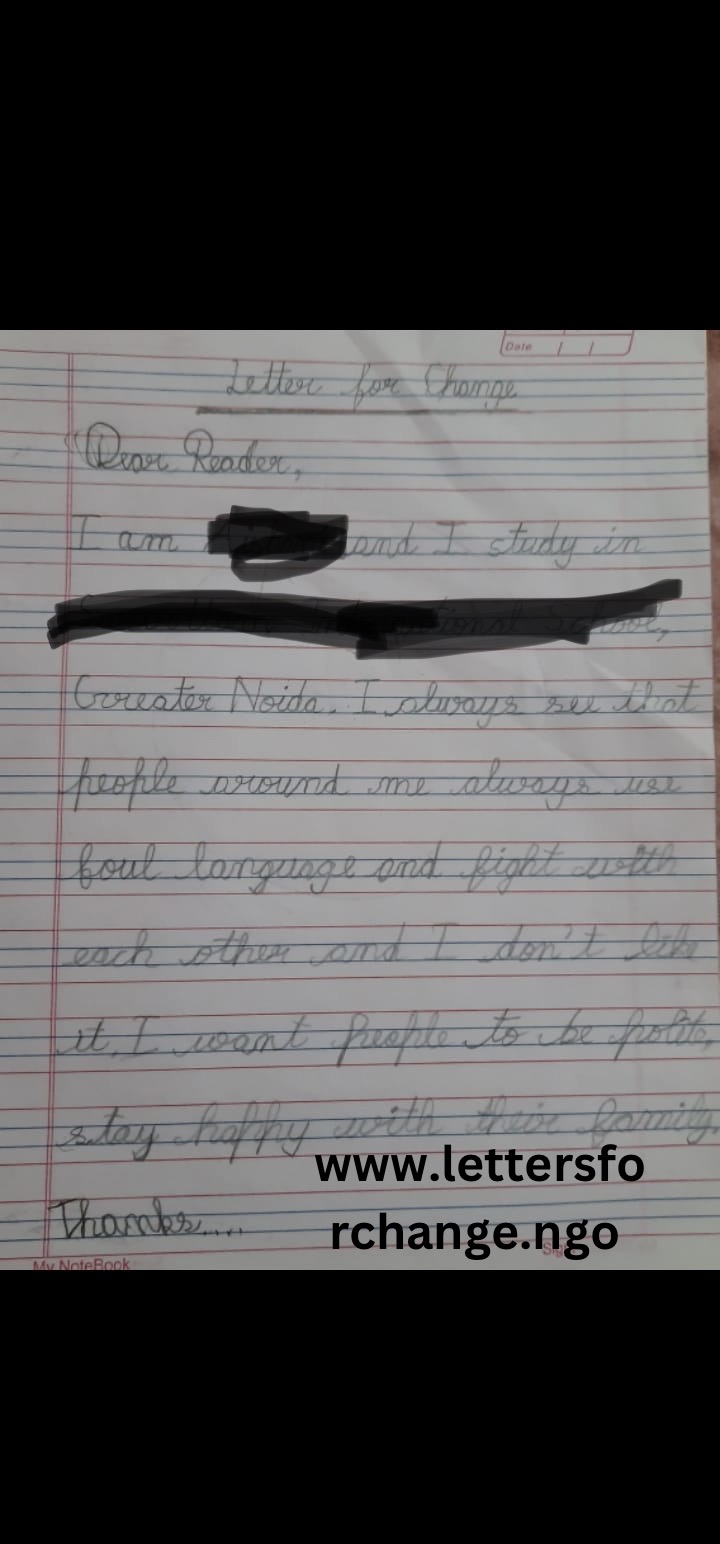 Date / /
Letter for Change
Dear Reader,
I am and I study in
School,
Greater Noida. I always see that
people around me always use
foul language and fight with
each other and I don't like
it. I want people to be polite,
stay happy with their family.
Thanks....
www.lettersfo
rchange.ngo
My NoteBook